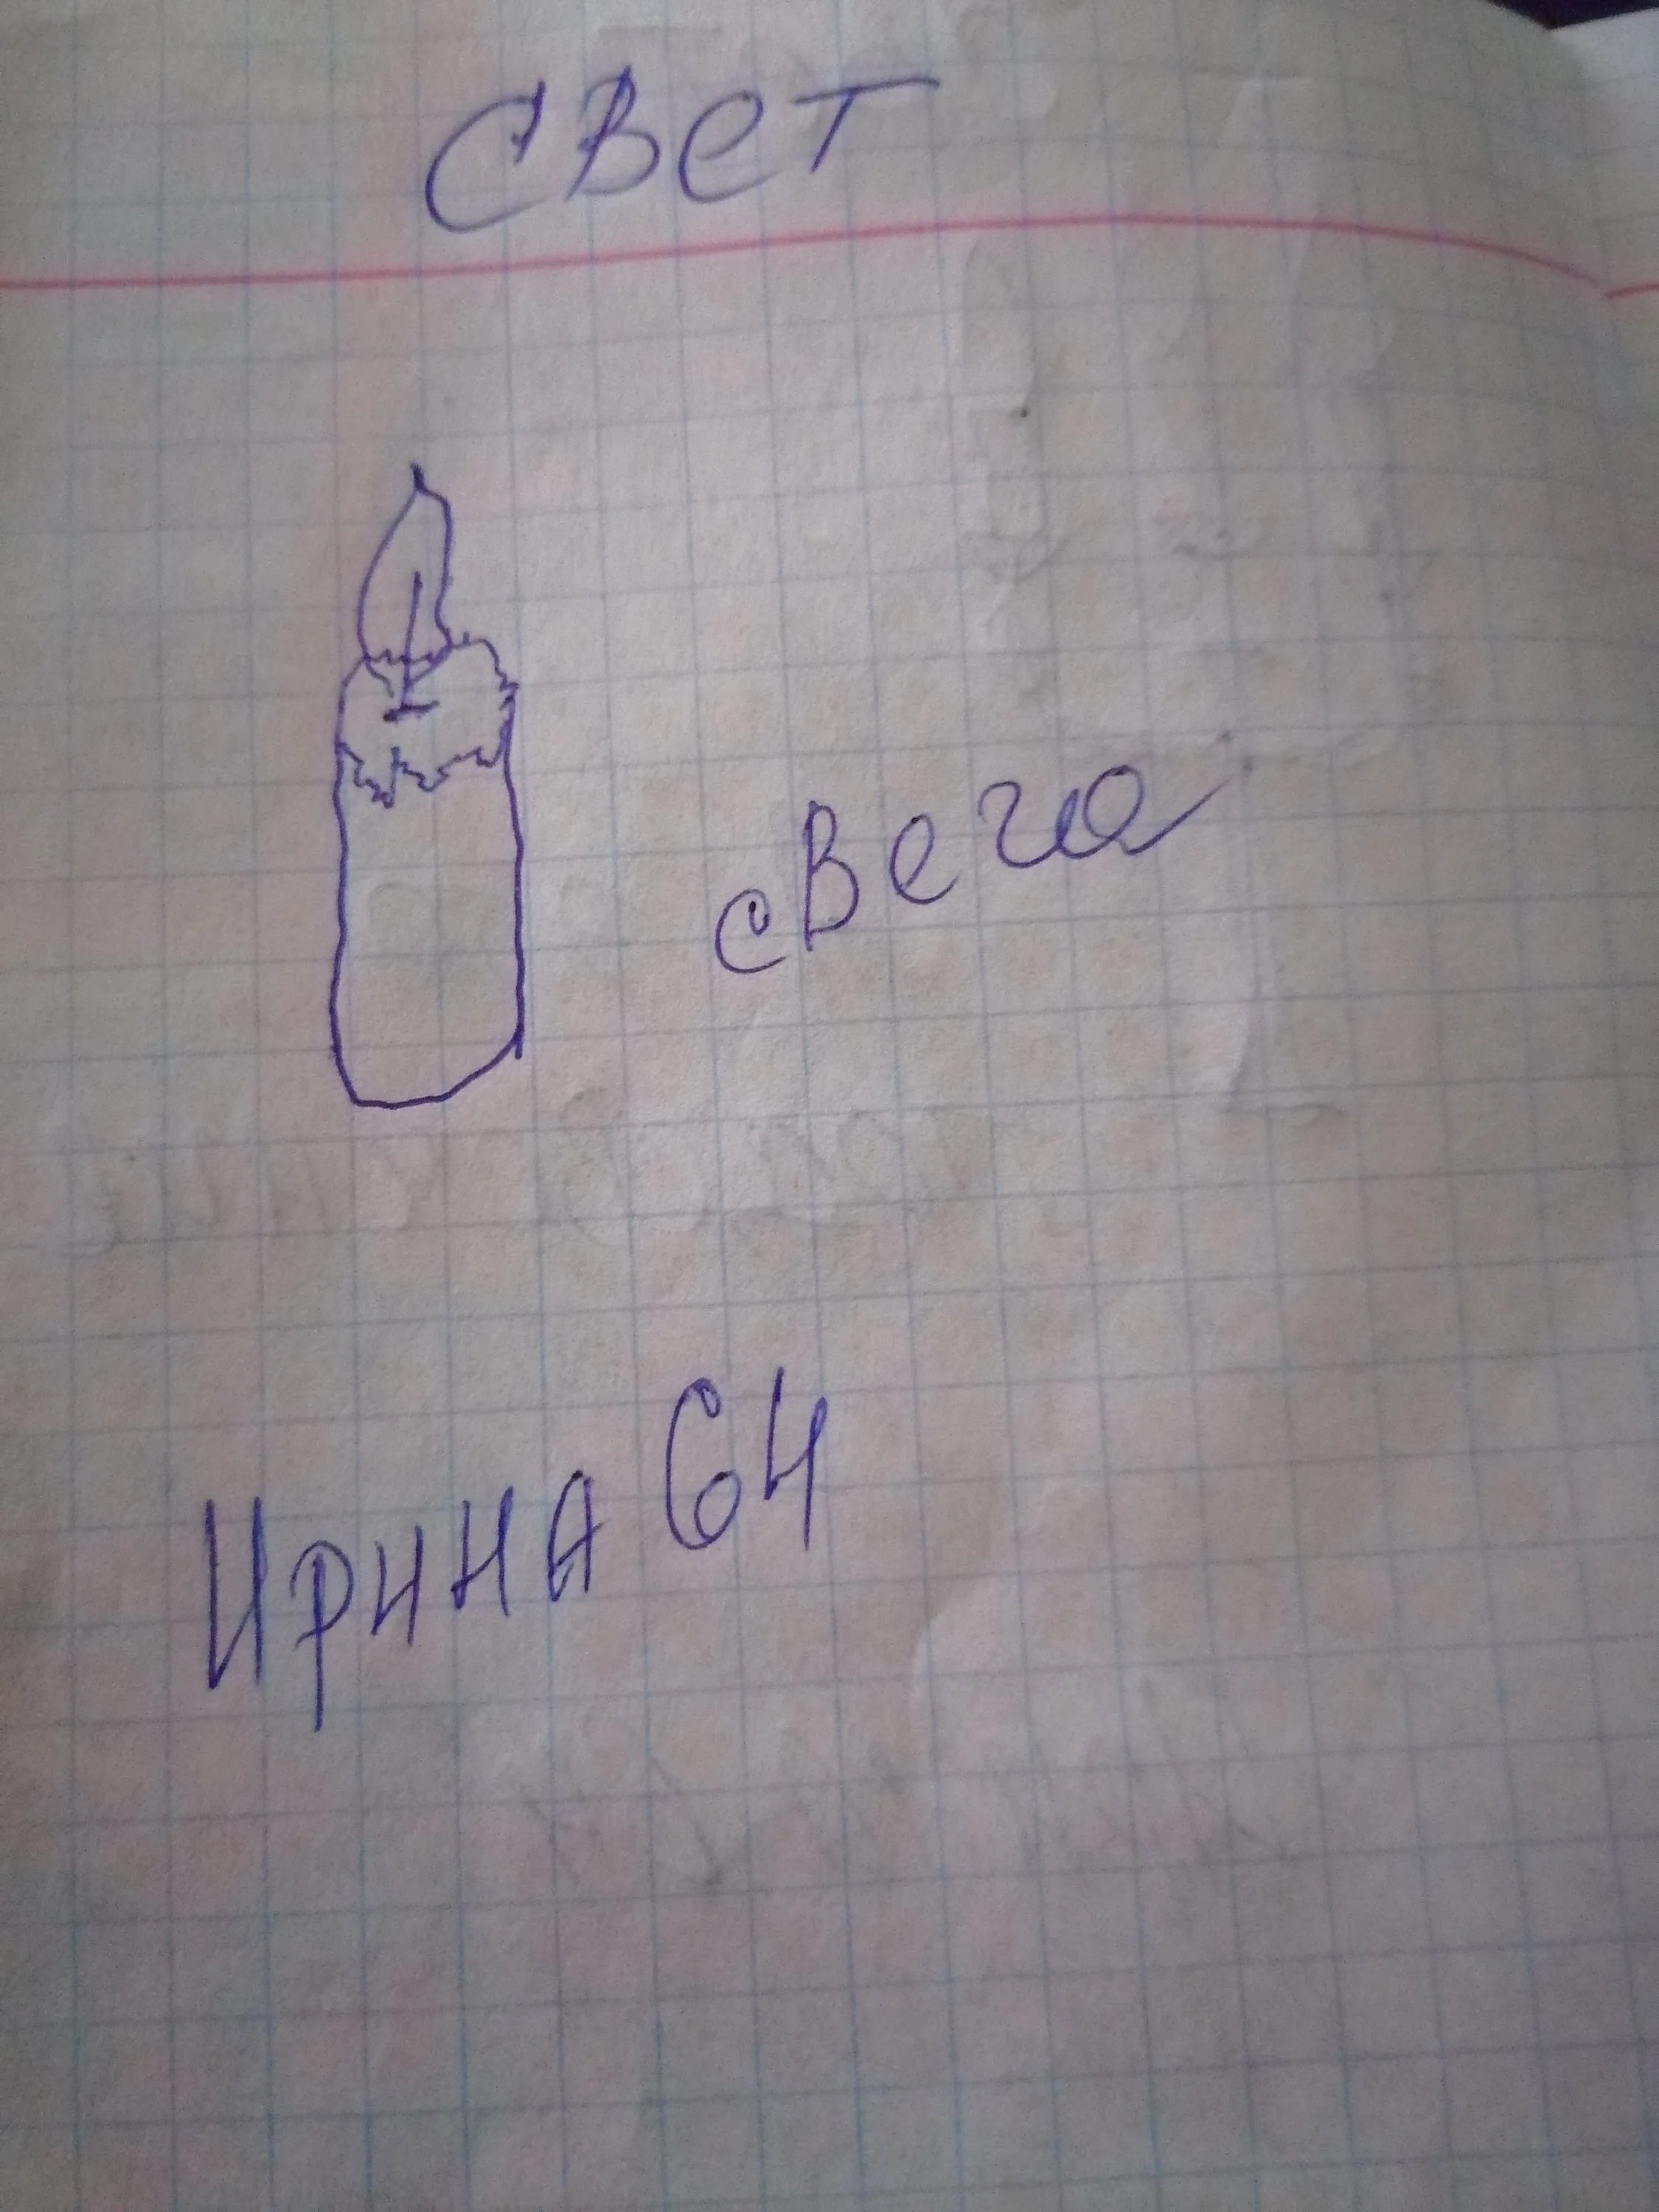 свет
свеча
Ирина 64